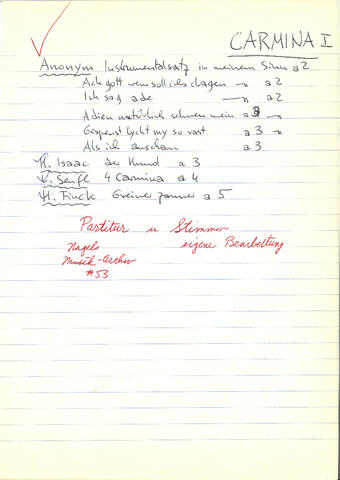 CARMINA I
Anonym Instrumentalsatz in meinem Sinn a 2
Ach gott wem soll ichs clagen -"- a 2
Ich sag ade -"- a 2
Adieu natürlich sehnen mein a 3 -"-
Gespenst lycht my so vast a 3 -"-
Als ich anschau a 3
H. Isaac der Hund a 3
L. Senfl 4 Carmina a 4
H. Finck Greiner zanner a 5
Partitur u Stimmen
Nagels eigene Bearbeitung
Musik-Archiv
#53